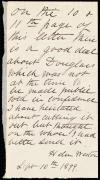 on the 10 &
11th page of
this letter there
is a good deal
about Douglass
which was not
at the time to
be made public
told in confidence
I have hesitated
about cutting it
out but thought
on the whole I had
better send it
Sept 10th 1899